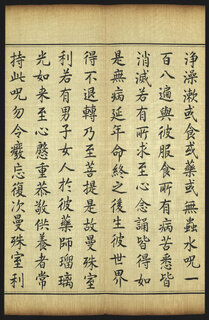 淨澡漱或食或藥或無蟲水呪一
百八遍與彼服食所有病苦悉皆
消滅若有所求至心念誦皆得如
是無病延年命終之後生彼世界
得不退轉乃至菩提是故曼殊室
利若有男子女人於彼藥師瑠璃
光如来至心慇重恭敬供養者常
持此呪勿令廢忘復次曼殊室利